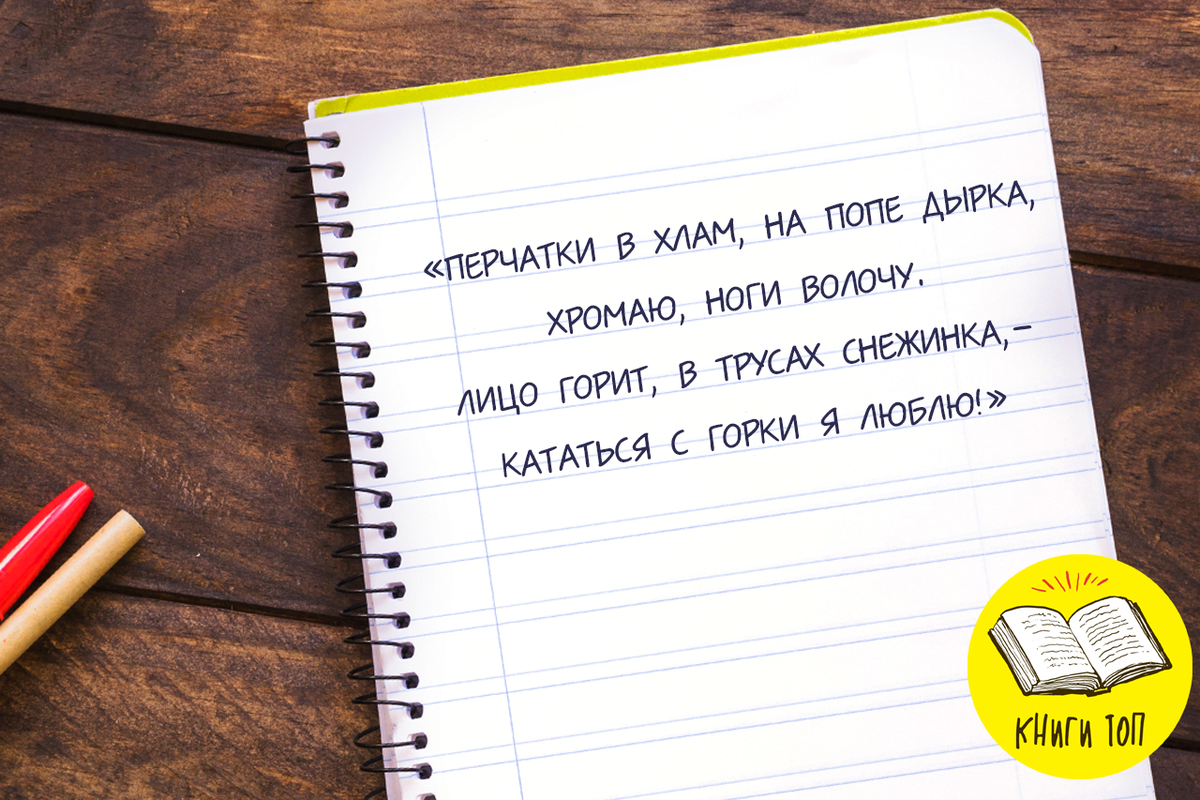 «ПЕРЧАТКИ В ХЛАМ, НА ПОПЕ ДЫРКА,
ХРОМАЮ, НОГИ ВОЛОЧУ.
ЛИЦО ГОРИТ, В ТРУСАХ СНЕЖИНКА,–
КАТАТЬСЯ С ГОРКИ Я ЛЮБЛЮ!»
КНИГИ ТОП